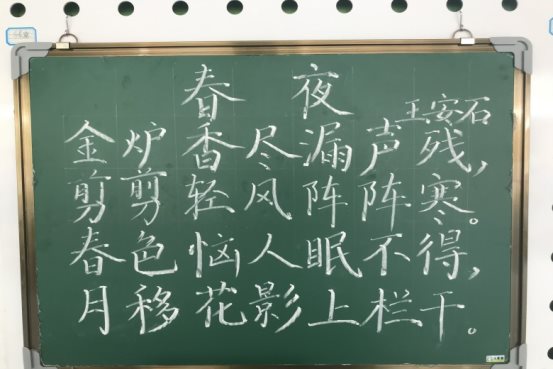 春夜
王安石
金炉香尽漏声残，
剪剪轻风阵阵寒。
春色恼人眠不得，
月移花影上栏干。